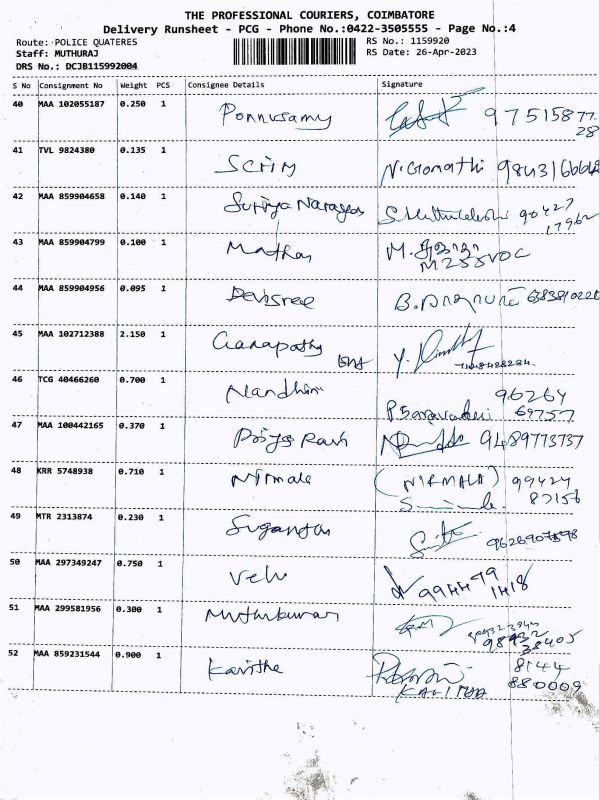 THE PROFESSIONAL COURIERS, COIMBATORE
Delivery Runsheet - PCG - Phone No.:0422-3505555 - Page No.:4
Route: POLICE QUATERES
Staff: MUTHURAJ
DRS No.: DCJB115992004
RS No.: 1159920
RS Date: 26-Apr-2023
S No Consignment No Weight PCS Consignee Details Signature
40 MAA 102055187 0.250 1 Ponnusamy 9751587728
41 TVL 9824380 0.135 1 N.Gomathi
42 MAA 859904658 0.140 1 Suriya Narayan 90427
17962
43 MAA 859904799 0.100 1 Mathan M.
44 MAA 859904956 0.095 1 Devisree B.
45 MAA 102712388 2.150 1 Ganapathy Y.
46 TCG 40466260 0.700 1 Nandhini 96264
69757
47 MAA 100442165 0.370 1 9489773737
48 KRR 5748938 0.710 1 Nirmala (NIRMALA) 99424
87156
49 MTR 2313874 0.230 1
50 MAA 297349247 0.750 1 Velu 994499
1418
51 MAA 299581956 0.300 1 Muthukumar
98432
38405
52 MAA 859231544 0.900 1 Kavitha 8144
880009
KAVITHA